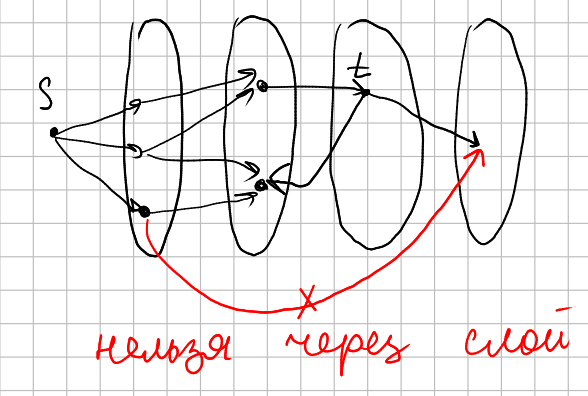 S
t
нельзя через слой